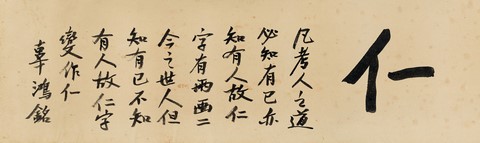 仁
凡為人之道
必知有己亦
知有人故仁
字有兩画二
今之世人但
知有己不知
有人故仁字
變作仁
辜鴻銘